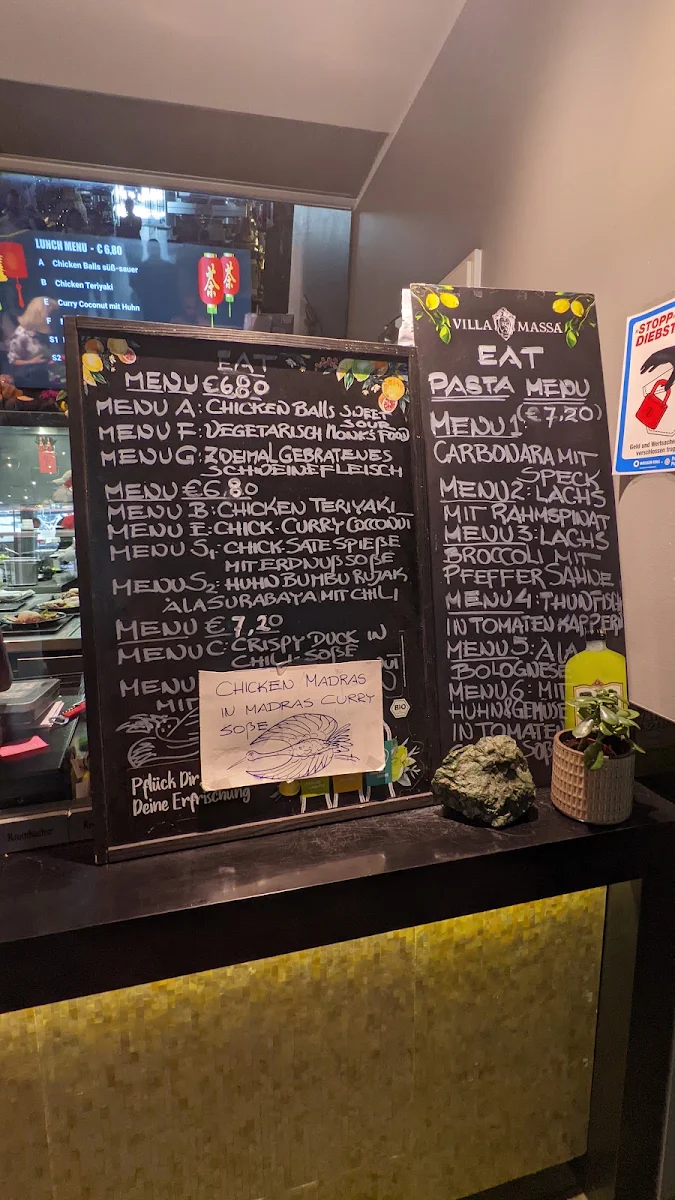 LUNCH MENU - € 6,80
A Chicken Balls süß-sauer
B Chicken Teriyaki
E Curry Coconut mit Huhn
F
S1
S2
EAT
MENU €6.80
MENU A: CHICKEN BALLS SWEET
SOUR
MENU F: VEGETARISCH MONK'S FOOD
MENU G: ZWEIMAL GEBRATENES
SCHWEINEFLEISCH
MENU €6.80
MENU B: CHICKEN TERIYAKI
MENU E: CHICK. CURRY COCONUT
MENU S1: CHICK SATE SPIEßE
MIT ERDNUßSOßE
MENU S2: HUHN BUMBU RUJAK
ÀLA SURABAYA MIT CHILI
MENU € 7,20
MENU C: CRISPY DUCK IN
CHILI-SOßE
MENU
MIT
CHICKEN MADRAS
IN MADRAS CURRY
SOßE
BIO
Pflück Dir
Deine Erfrischung
VILLA MASSA
EAT
PASTA MENU
MENU 1 (€ 7,20)
CARBONARA MIT
SPECK
MENU 2: LACHS
MIT RAHMSPINAT
MENU 3: LACHS
BROCCOLI MIT
PFEFFER SAHNE
MENU 4: THUNFISCH
IN TOMATEN KAPPERN
MENU 5: ÀLA
BOLOGNESE
MENU 6: MIT
HUHN & GEMÜSE
IN TOMATEN
STOPP
DIEBST
Geld und Wertsachen
verschlossen